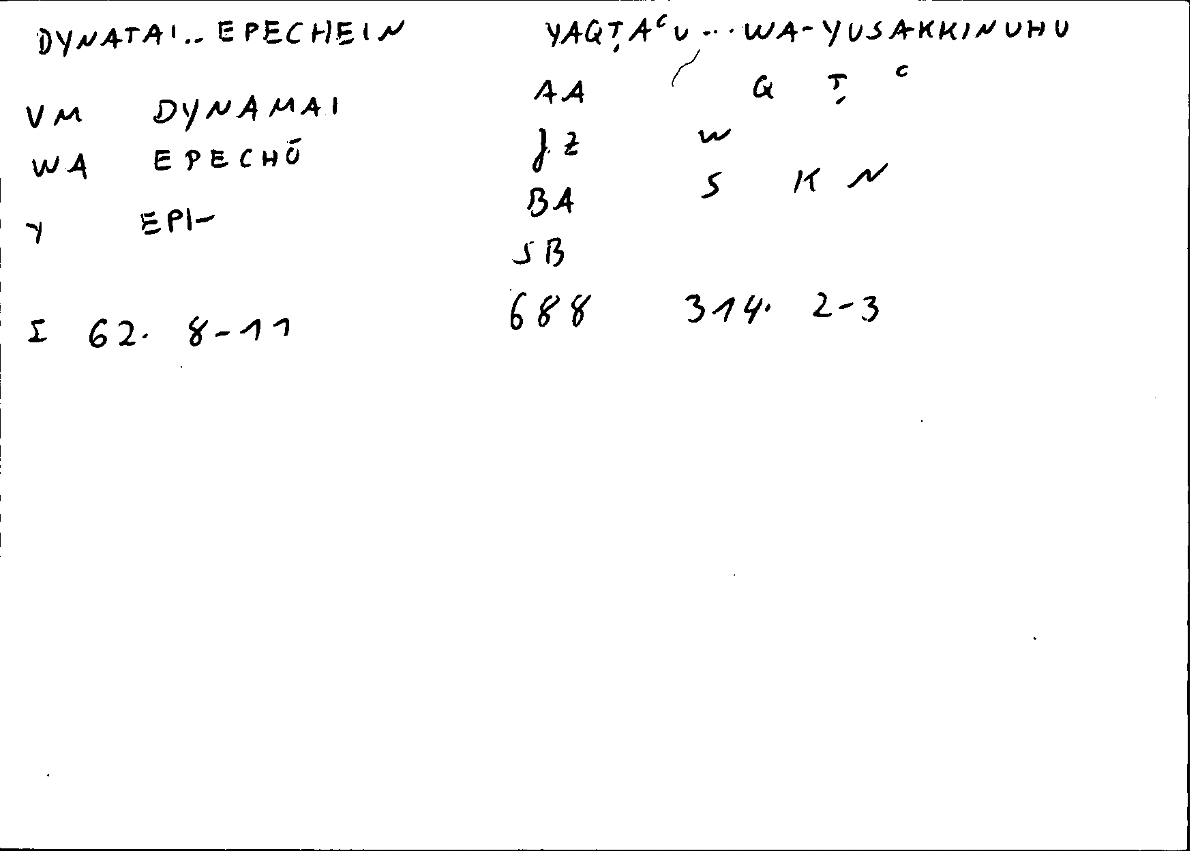 DYNATAI.. EPECHEIN YAQṬAᶜU ... WA-YUSAKKINUHU
VM DYNAMAI AA / Q Ṭ ᶜ
WA EPECHŌ JZ W
Y EPI- BA S K N
SB
Σ 62. 8-11 688 314. 2-3